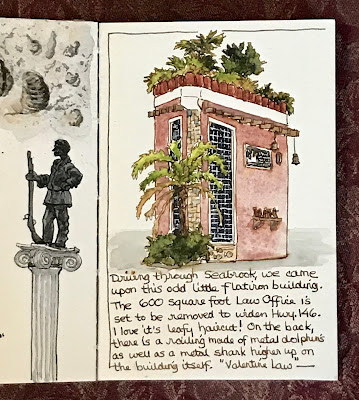 Driving through Seabrook, we came
upon this odd little flatiron building.
The 600 square foot Law Office is
set to be removed to widen Hwy. 146.
I love it's leafy haircut! On the back,
there is a railing made of metal dolphins
as well as a metal shark higher up on
the building itself. "Valentine Law" —